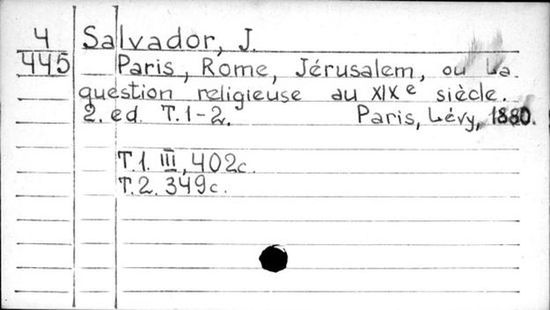 4 Salvador, J.
445 Paris, Rome, Jérusalem, ou La
question religieuse au XIXe siècle.
2. ed. T.1-2. Paris, Lévy, 1880.
T.1. III, 402c.
T.2. 349c.